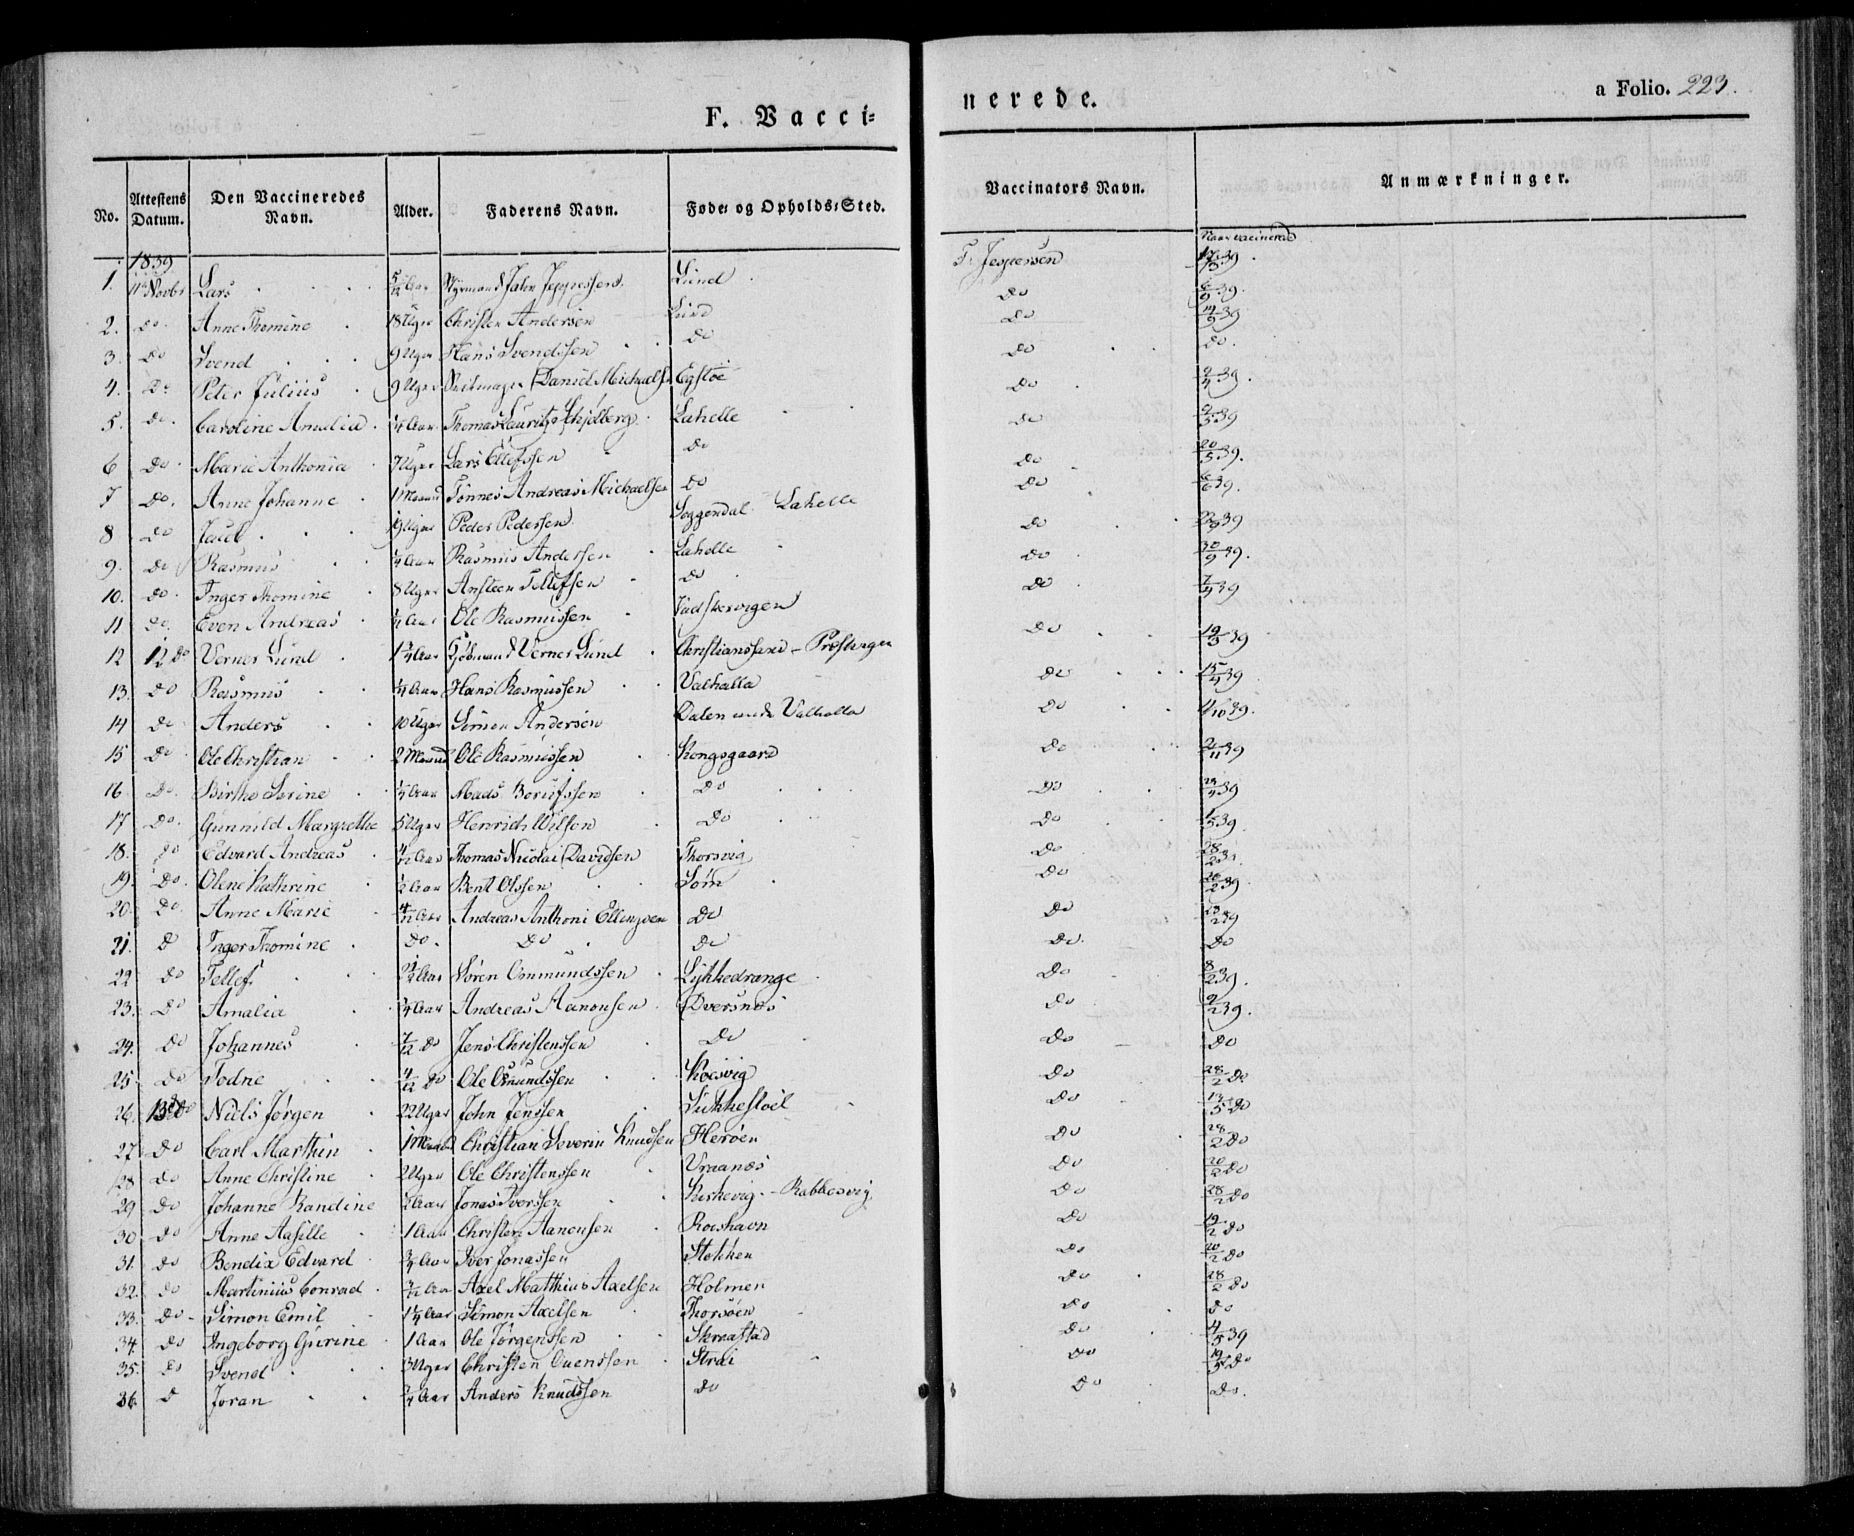 F. Vacci=
nerede.
a Folio. 223.
No. Attestens Datum. Den Vaccineredes Navn. Alder. Faderens Navn. Føde= og Opholds=Sted. Vaccinators Navn. Anmærkninger.
1839 Naar vaccinered
1. 11te Novbr Lars Aar Styrmand Jahn Jeppessen Lund T. Jespersen
2. Do Anne Thomine 18 Uger Christen Andersen Lund Do 39.
3. Do Svend 9 Uger Hans Svendssen Do Do 39
4. Do Peter Julius 9 Uger Daniel Michaels Egstøe Do Do.
5. Do. Caroline Amalia 1/4 Aar Thomas Lauritz Lahelle Do 39.
6 Do Marie Anthonia 7 Uger Lars Ellefssen Do Do 39
7 Do. Anne Johanne Maaned Tönnes Andreas Michaelsen Do Do 20/5 39.
8 Do 19 Uger Peder Pedersen Soggendal Lahelle Do 39.
9. Do Rasmus 1/4 Aar Rasmus Andersen Lahelle Do 39
10. Do. Inger Thomine 8 Uger Ansteen Tellefsen Do Do 30/9 39.
11 Do. Even Andreas Aar Ole Rasmussen Do 39
12 12 Do Verner Lund Aar Kjöbmand Verner Lund Christianssand - Do 19/3 39
13. Do Rasmus 1/4 Aar Hans Rasmussen Valhalla Do 39
14 Do. Anders 10 Uger Simen Andersen Dalen under Valhalla Do 39.
15 Do Ole Christian 2 Maaned Ole Rasmussen Kongsgaard Do 39
16. Do. Birthe Serine Aar Mads Do Do 39
17 Do. Gunnild Margrethe 5 Uger Henrich Wilson Do Do 39.
18. Do Edvard Andreas 4/12 Aar Thomas Nicolai Davidsen Thorsvig Do 28/2 39
19. Do. Olene Kathrine 1/2 Aar Bent Olssen Söm Do 39.
20. Do. Anne Marie 4/12 Aar Andreas Anthoni Ellingsen Do Do 39
21. D Inger Thomine Do. Do Do Do. Do
22 Do Tellef Aar Sören Ommundssen Lykkedrange Do 8/2 39.
23. Do Amalia 1/4 Aar Andreas Aanonsen Dversnes Do 9/2 39.
24. Do Johannes 7/12 Do Jens Christenssen Do Do Do
25 Do Todne 4/12 Do Ole Osmundssen Kosvig Do 28/2 Do
26. 13de Do Niels Jörgen 22 Uger John Jenssen Do Do
27. Do Carl Marthin 1 Maaned Christian Severin Knudsen Heröen Do 28/2 Do
28 Do Anne Christine Uger Ole Christenssen Vraanes Do 20/2 Do
29 Do Johanne Randine Aar Jonas Iverssen Kirkevig - Rabbesvig Do 28/2 Do
30 Do Anne Aaselle 1 Aar Christen Aanonsen Roeshavn Do 19/2 Do
31. Do Benedix Edvard 3/4 Aar Iver Jonassen Stokken Do 20/2 Do
32. Do Martinius Conrad Aar Axel Matthias Axelsen Holmen Do 28/2 Do
33. Do Simon Emil 1 1/4 Aar Simon Axelsen Thorsöen Do Do
34. Do Ingeborg Gurine 1 Aar Ole Jörgenssen Skraastad Do 4/5 39
35. Do Svend 3 Uger Christen Ouenssen Strai Do 19/5 Do
36. D Joran Aar Anders Knudssen Do Do Do.